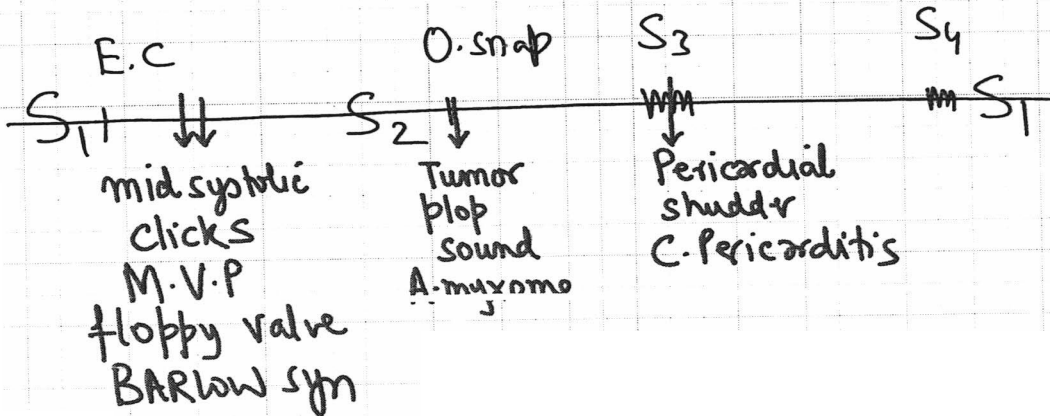 E.C O.snap S3 S4
S1 S2 S1
mid systolic
clicks
M.V.P
floppy valve
BARLOW syn
Tumor
plop
sound
A.myxoma
Pericardial
shudder
C.Pericarditis